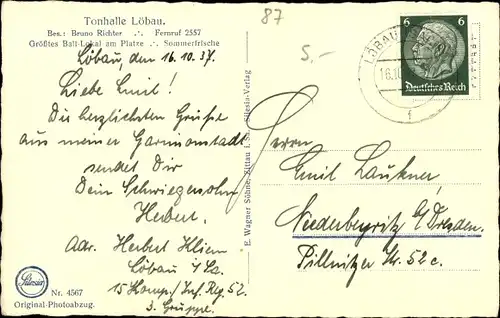 Tonhalle Löbau.
Bes.: Bruno Richter .:. Fernruf 2557
Größtes Ball-Lokal am Platze .:. Sommerfrische
87
5,-
Löbau, den 16.10.37.
Liebe Emil!
Die herzlichsten Grüße
aus meiner Garnisonstadt
sendet Dir
Dein Schwiegersohn
Herbert.
Adr. Herbert Kliem
Löbau i/Sa.
15 Komp./Inf. Reg 52
3. Gruppe.
Silesia
Nr. 4567
Original-Photoabzug.
E. Wagner Söhne, Zittau i. Sa., Silesia-Verlag
LÖBAU
16.10
f
6 6
Deutsches Reich
Herrn
Emil Laukner
Niederpoyritz b/Dresden.
Pillnitzer Str. 52c.